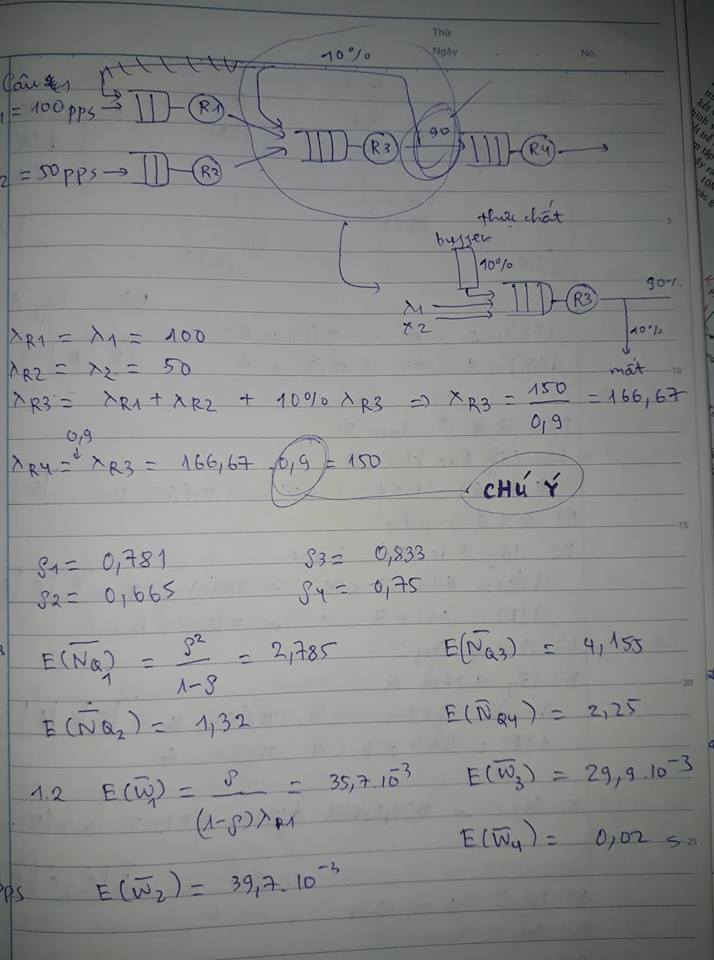 Thứ
Ngày
No.
10%
Câu 1
1 = 100pps
R1
R3
90
R4
2 = 50pps
R2
thực chất
buffer
10%
λ1
λ2
R3
90%
10%
mất
λR1 = λ1 = 100
λR2 = λ2 = 50
λR3 = λR1 + λR2 + 10% λR3 => λR3 = 150/0,9 = 166,67
0,9
λR4 = λR3 = 166,67 . 0,9 = 150
CHÚ Ý
ρ1 = 0,781 ρ3 = 0,833
ρ2 = 0,665 ρ4 = 0,75
E(N̅Q1) = ρ²/(1-ρ) = 2,785 E(N̅Q3) = 4,155
E(N̅Q2) = 1,32 E(N̅Q4) = 2,25
1.2 E(W̅1) = ρ/((1-ρ)λR1) = 35,7.10⁻³ E(W̅3) = 29,9.10⁻³
E(W̅4) = 0,02 s
pps E(W̅2) = 39,7.10⁻³
5
10
15
20
25